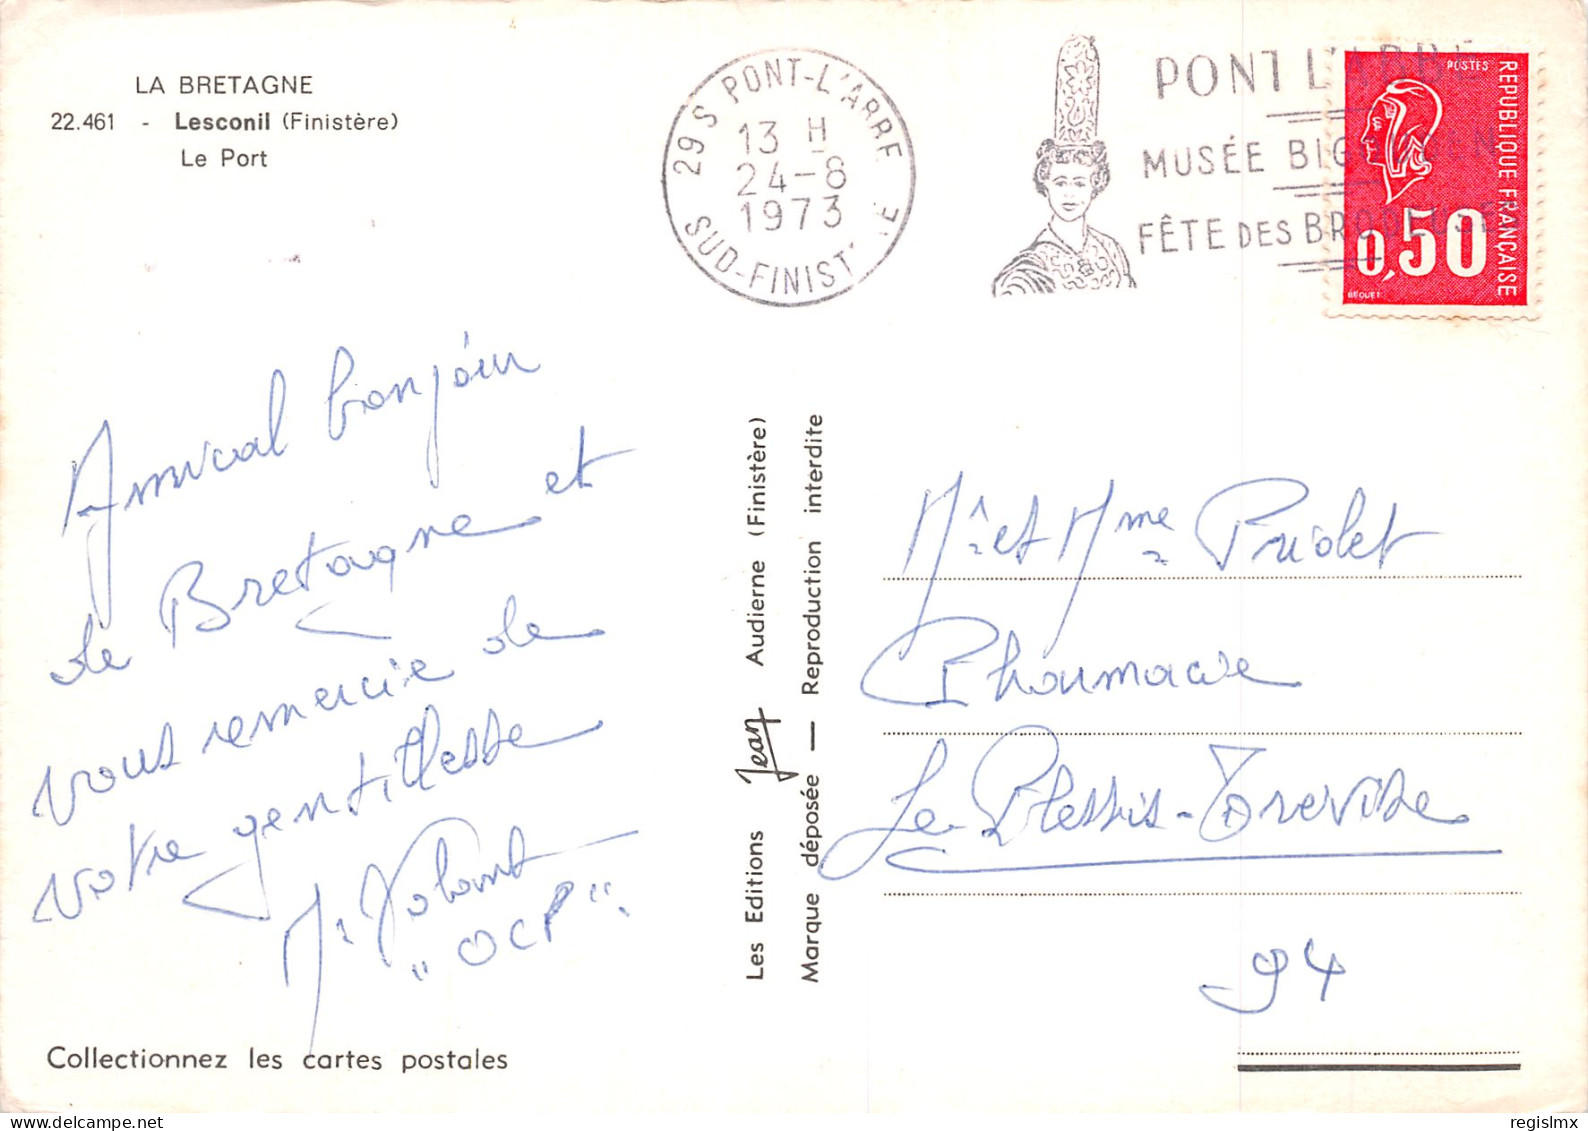 LA BRETAGNE
22.461 - Lesconil (Finistère)
Le Port
29 S PONT-L'ABBE
13 H
24-8
1973
SUD-FINIST
PONT L'ABBÉ
MUSÉE BIGOUDEN
FÊTE DES BRODEUSES
POSTES
REPUBLIQUE FRANÇAISE
0,50
BEQUET
Amical bonjour
de Bretagne et
vous remercie de
votre gentillesse
Mr Volant
"OCP".
Les Editions Jean Audierne (Finistère)
Marque déposée — Reproduction interdite
Mr et Mme Priolet
Pharmacie
Le Plessis-Trevise
94
Collectionnez les cartes postales
regislmx